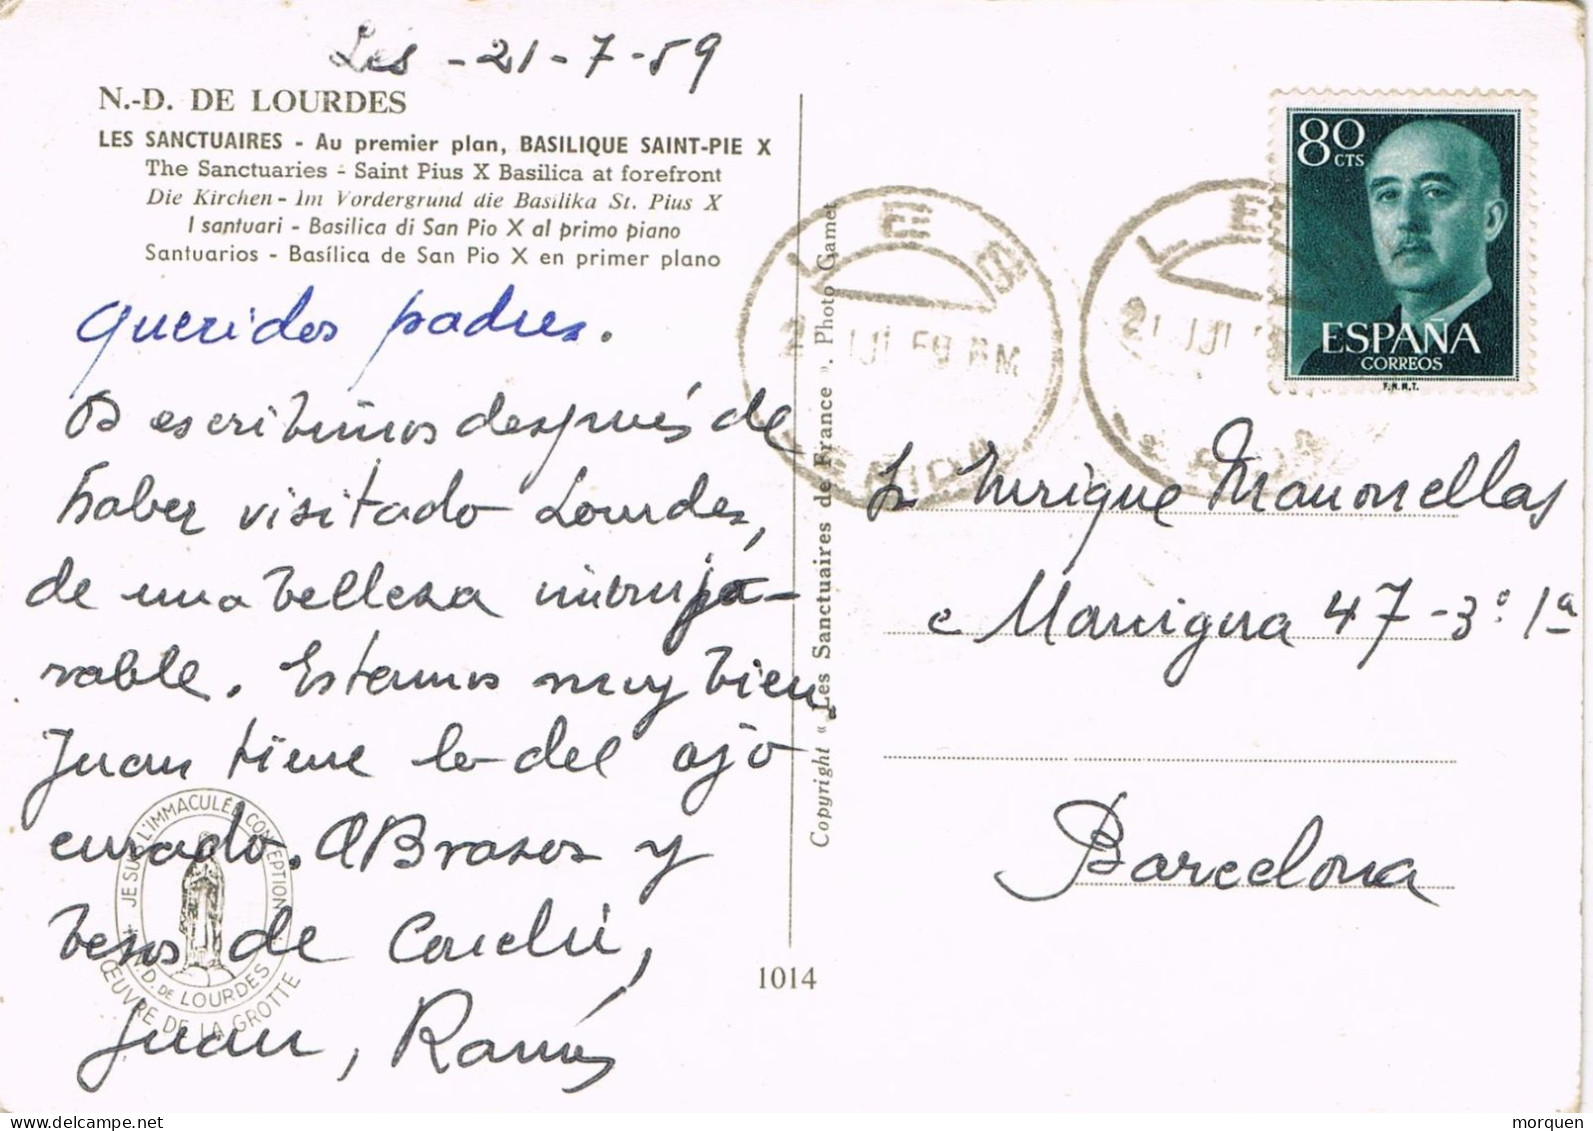 Les - 21 - 7 - 59
N.-D. DE LOURDES
LES SANCTUAIRES - Au premier plan, BASILIQUE SAINT-PIE X
The Sanctuaries - Saint Pius X Basilica at forefront
Die Kirchen - Im Vordergrund die Basilika St. Pius X
I santuari - Basilica di San Pio X al primo piano
Santuarios - Basílica de San Pio X en primer plano
Queridos padres.
Os escribimos después de
haber visitado Lourdes,
de una belleza
Estamos muy bien.
Juan tiene lo del ojo
curado. ABrasos y
besos de Conchi,
Juan, Ramón
JE SUIS L'IMMACULÉE CONCEPTION
N.D. DE LOURDES
ŒUVRE DE LA GROTTE
Copyright « Les Sanctuaires de France ». Photo Gamet
1014
LES
21 JUL 59
LERIDA
LES
21 JUL
80 CTS
ESPAÑA
CORREOS
F.N.M.T.
Sr Enrique Manonellas
c Manigua 47 - 3º 1ª
Barcelona
morquen